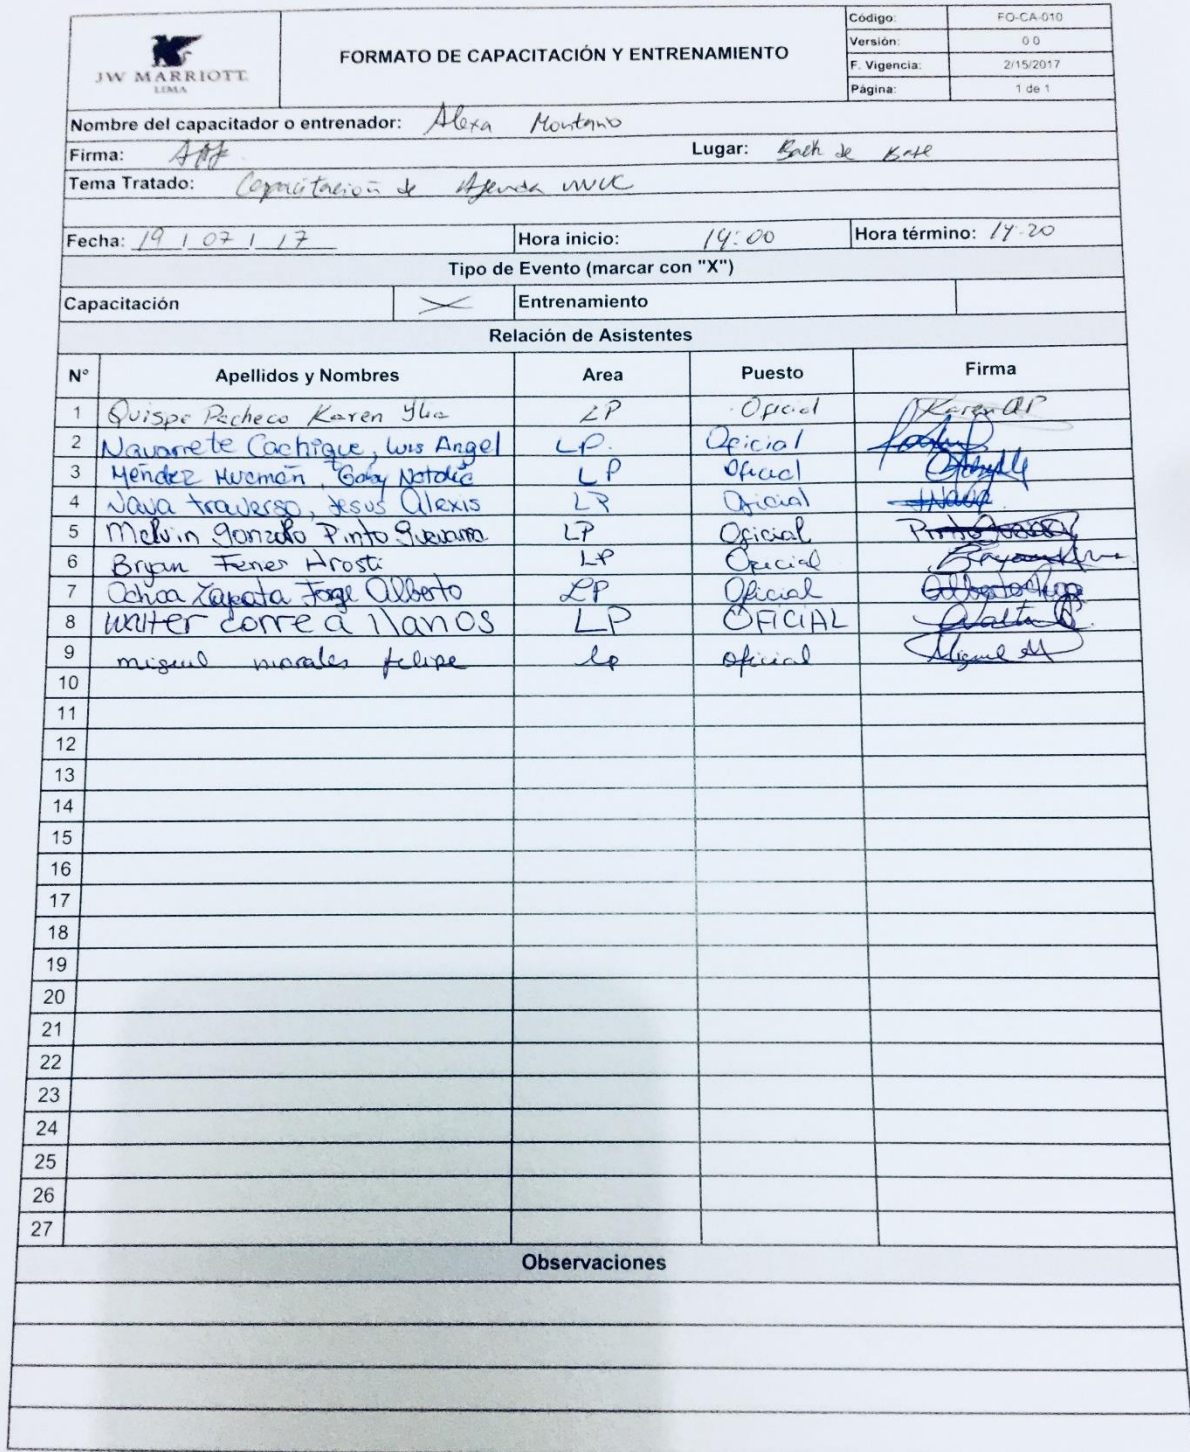 JW MARRIOTT
LIMA
FORMATO DE CAPACITACIÓN Y ENTRENAMIENTO
Código: FO-CA-010
Versión: 0 0
F. Vigencia: 2/15/2017
Página: 1 de 1
Nombre del capacitador o entrenador: Alexa Montano
Firma:
Lugar: Back de
Tema Tratado: Capacitación de Agenda
Fecha: 19 / 07 / 17 Hora inicio: 14:00 Hora término: 14:20
Tipo de Evento (marcar con "X")
Capacitación X Entrenamiento
Relación de Asistentes
N° Apellidos y Nombres Area Puesto Firma
1 Quispe Pacheco Karen LP Oficial Karen QP
2 Navarrete Cachique, Luis Angel LP. Oficial
3 Méndez Huamán, Gaby Natalia LP Oficial
4 Nava traverso, Jesus Alexis LP Oficial JNava
5 Melvin Gonzalo Pinto Guevara LP Oficial
6 Bryan LP Oficial
7 Ochoa Zapata Jorge Alberto LP Oficial
8 Walter correa llanos LP OFICIAL
9 miguel morales felipe Lp oficial Miguel M
10
11
12
13
14
15
16
17
18
19
20
21
22
23
24
25
26
27
Observaciones